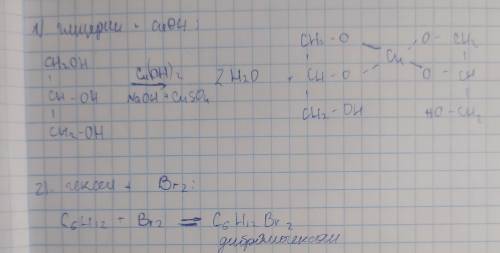 1) глицерин + CuOH:
CH₂OH
CH-OH
CH₂-OH
Cu(OH)₂
NaOH + CuSO₄
2 H₂O +
CH₂-O
CH-O
CH₂-OH
Cu
O-CH₂
O-CH
HO-CH₂
2) гексен + Br₂:
C₆H₁₂ - Br₂ = C₆H₁₂Br₂
дибромгексан